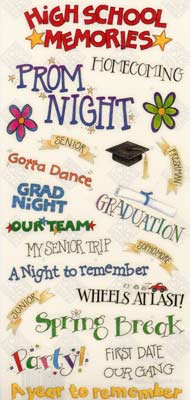 HIGH SCHOOL
MEMORIES
HOMECOMING
PROM
NIGHT
SENIOR
FRESHMAN
Gotta Dance
GRAD
NIGHT
GRADUATION
OUR TEAM
SOPHOMORE
MY SENIOR TRIP
A Night to remember
JUNIOR
WHEELS AT LAST!
Spring Break
Party!
FIRST DATE
OUR GANG
A year to remember